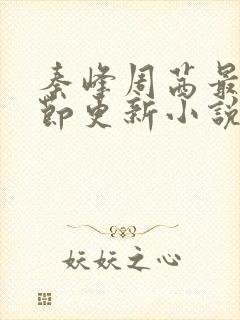 秦峰周茜最
節更新小說
妖妖之心